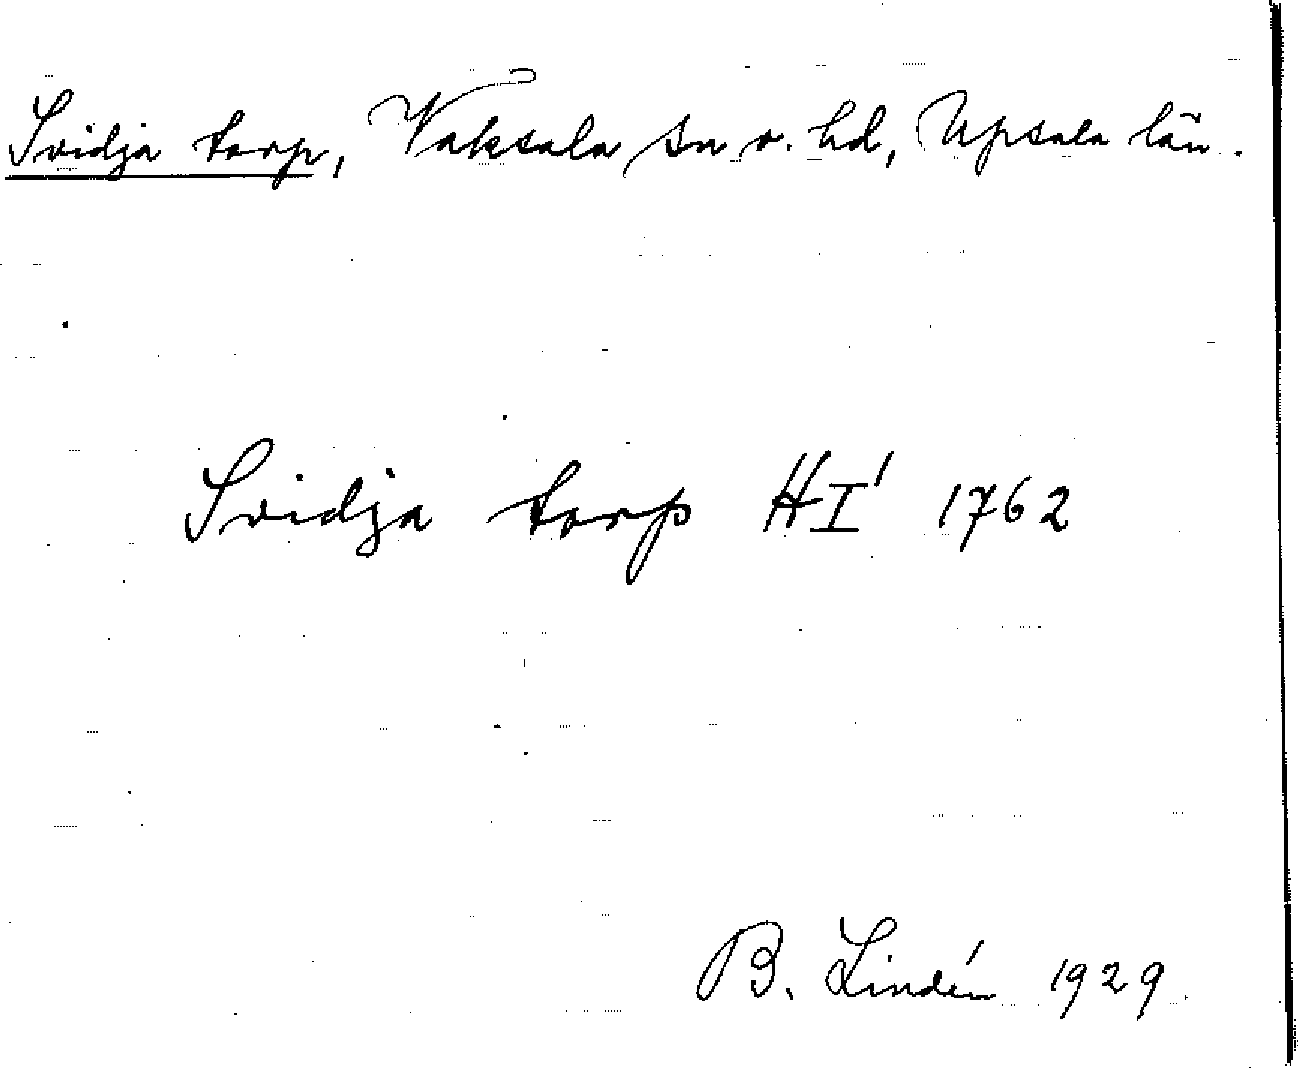 Svidja torp, Vaksala sn o. hd, Upsala län.
Svidja torp HI' 1762
B. Lindén 1929